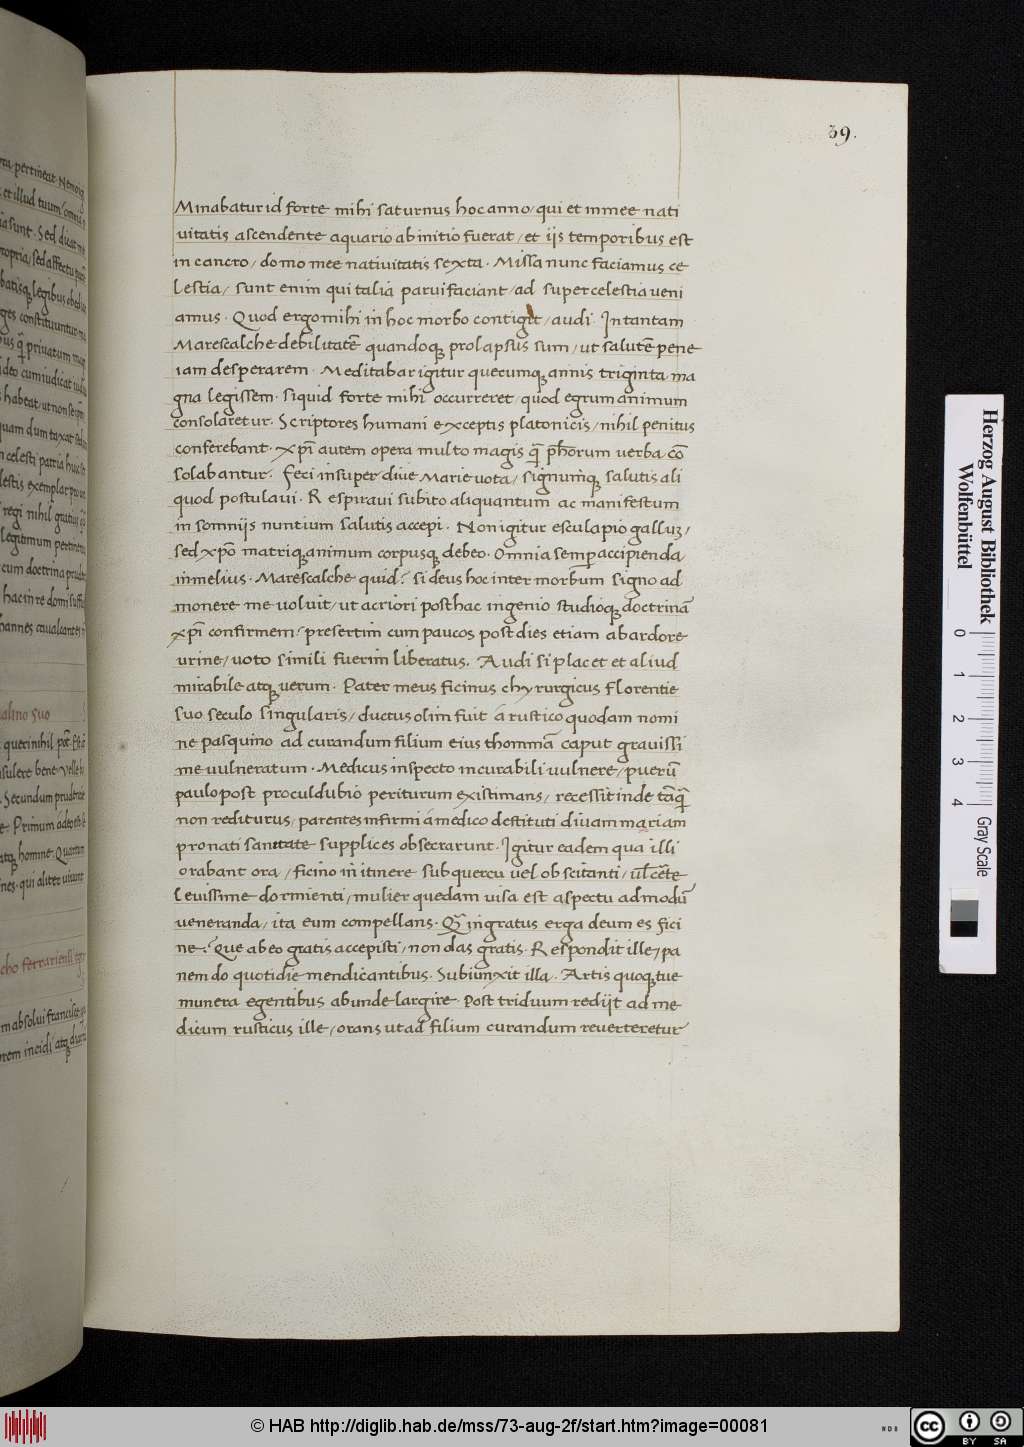 39.
Minabatur id forte mihi saturnus hoc anno/ qui et in mee nati
vitatis ascendente aquario ab initio fuerat/ et iis temporibus est
in cancro/ domo mee nativitatis sexta. Missa nunc faciamus ce
lestia/ sunt enim qui talia parui faciant/ ad supercelestia veni
amus. Quod ergo mihi in hoc morbo contigit/ audi. In tantam
Marescalche debilitatē quandoqꝫ prolapsus sum/ ut salutē pene
iam desperarem. Meditabar igitur quecumqꝫ annis triginta ma
gna legissem. siquid forte mihi occurreret quod egrum animum
consolaretur. Scriptores humani exceptis platonicis/ nihil penitus
conferebant. xp̄i autem opera multo magis q̄ pħorum uerba cō
solabantur. Feci insuper diue Marie uota/ signumqꝫ salutis ali
quod postulaui. Respiraui subito aliquantum ac manifestum
in somniis nuntium salutis accepi. Non igitur esculapio galluꝫ/
sed xp̄o matriqꝫ animum corpusqꝫ debeo. Omnia semꝑ accipienda
in melius. Marescalche quid? si deus hoc inter morbum signo ad
monere me uoluit/ ut acriori posthac ingenio studioqꝫ doctrinā
xp̄i confirmem? presertim cum paucos post dies etiam ab ardore
urine/ uoto simili fuerim liberatus. Audi si placet et aliud
mirabile atqꝫ uerum. Pater meus ficinus chyrurgicus Florentie
suo seculo singularis/ ductus olim fuit a rustico quodam nomi
ne pasquino ad curandum filium eius thommā caput grauissi
me uulneratum. Medicus inspecto incurabili uulnere/ puerū
paulo post proculdubio periturum existimans/ recessit inde tāq̄
non rediturus/ parentes infirmi a medico destituti diuam mariam
pro nati sanitate supplices obsecrarunt. Igitur eadem qua illi
orabant ora/ ficino in itinere sub quercu uel obscitanti/ ul̄ certe
leuissime dormienti/ mulier quedam uisa est aspectu admodū
ueneranda/ ita eum compellans. Q̄ ingratus erga deum es fici
ne? Que abeo gratis accepisti/ non das gratis. Respondit ille/ pa
nem do quotidie mendicantibus. Subiunxit illa. Artis quoqꝫ tue
munera egentibus abunde largire. Post triduum rediit ad me
dicum rusticus ille/ orans ut ad filium curandum reuerteretur
Herzog August Bibliothek
Wolfenbüttel
0 1 2 3 4
Gray Scale
© HAB http://diglib.hab.de/mss/73-aug-2f/start.htm?image=00081
WDB
cc BY SA